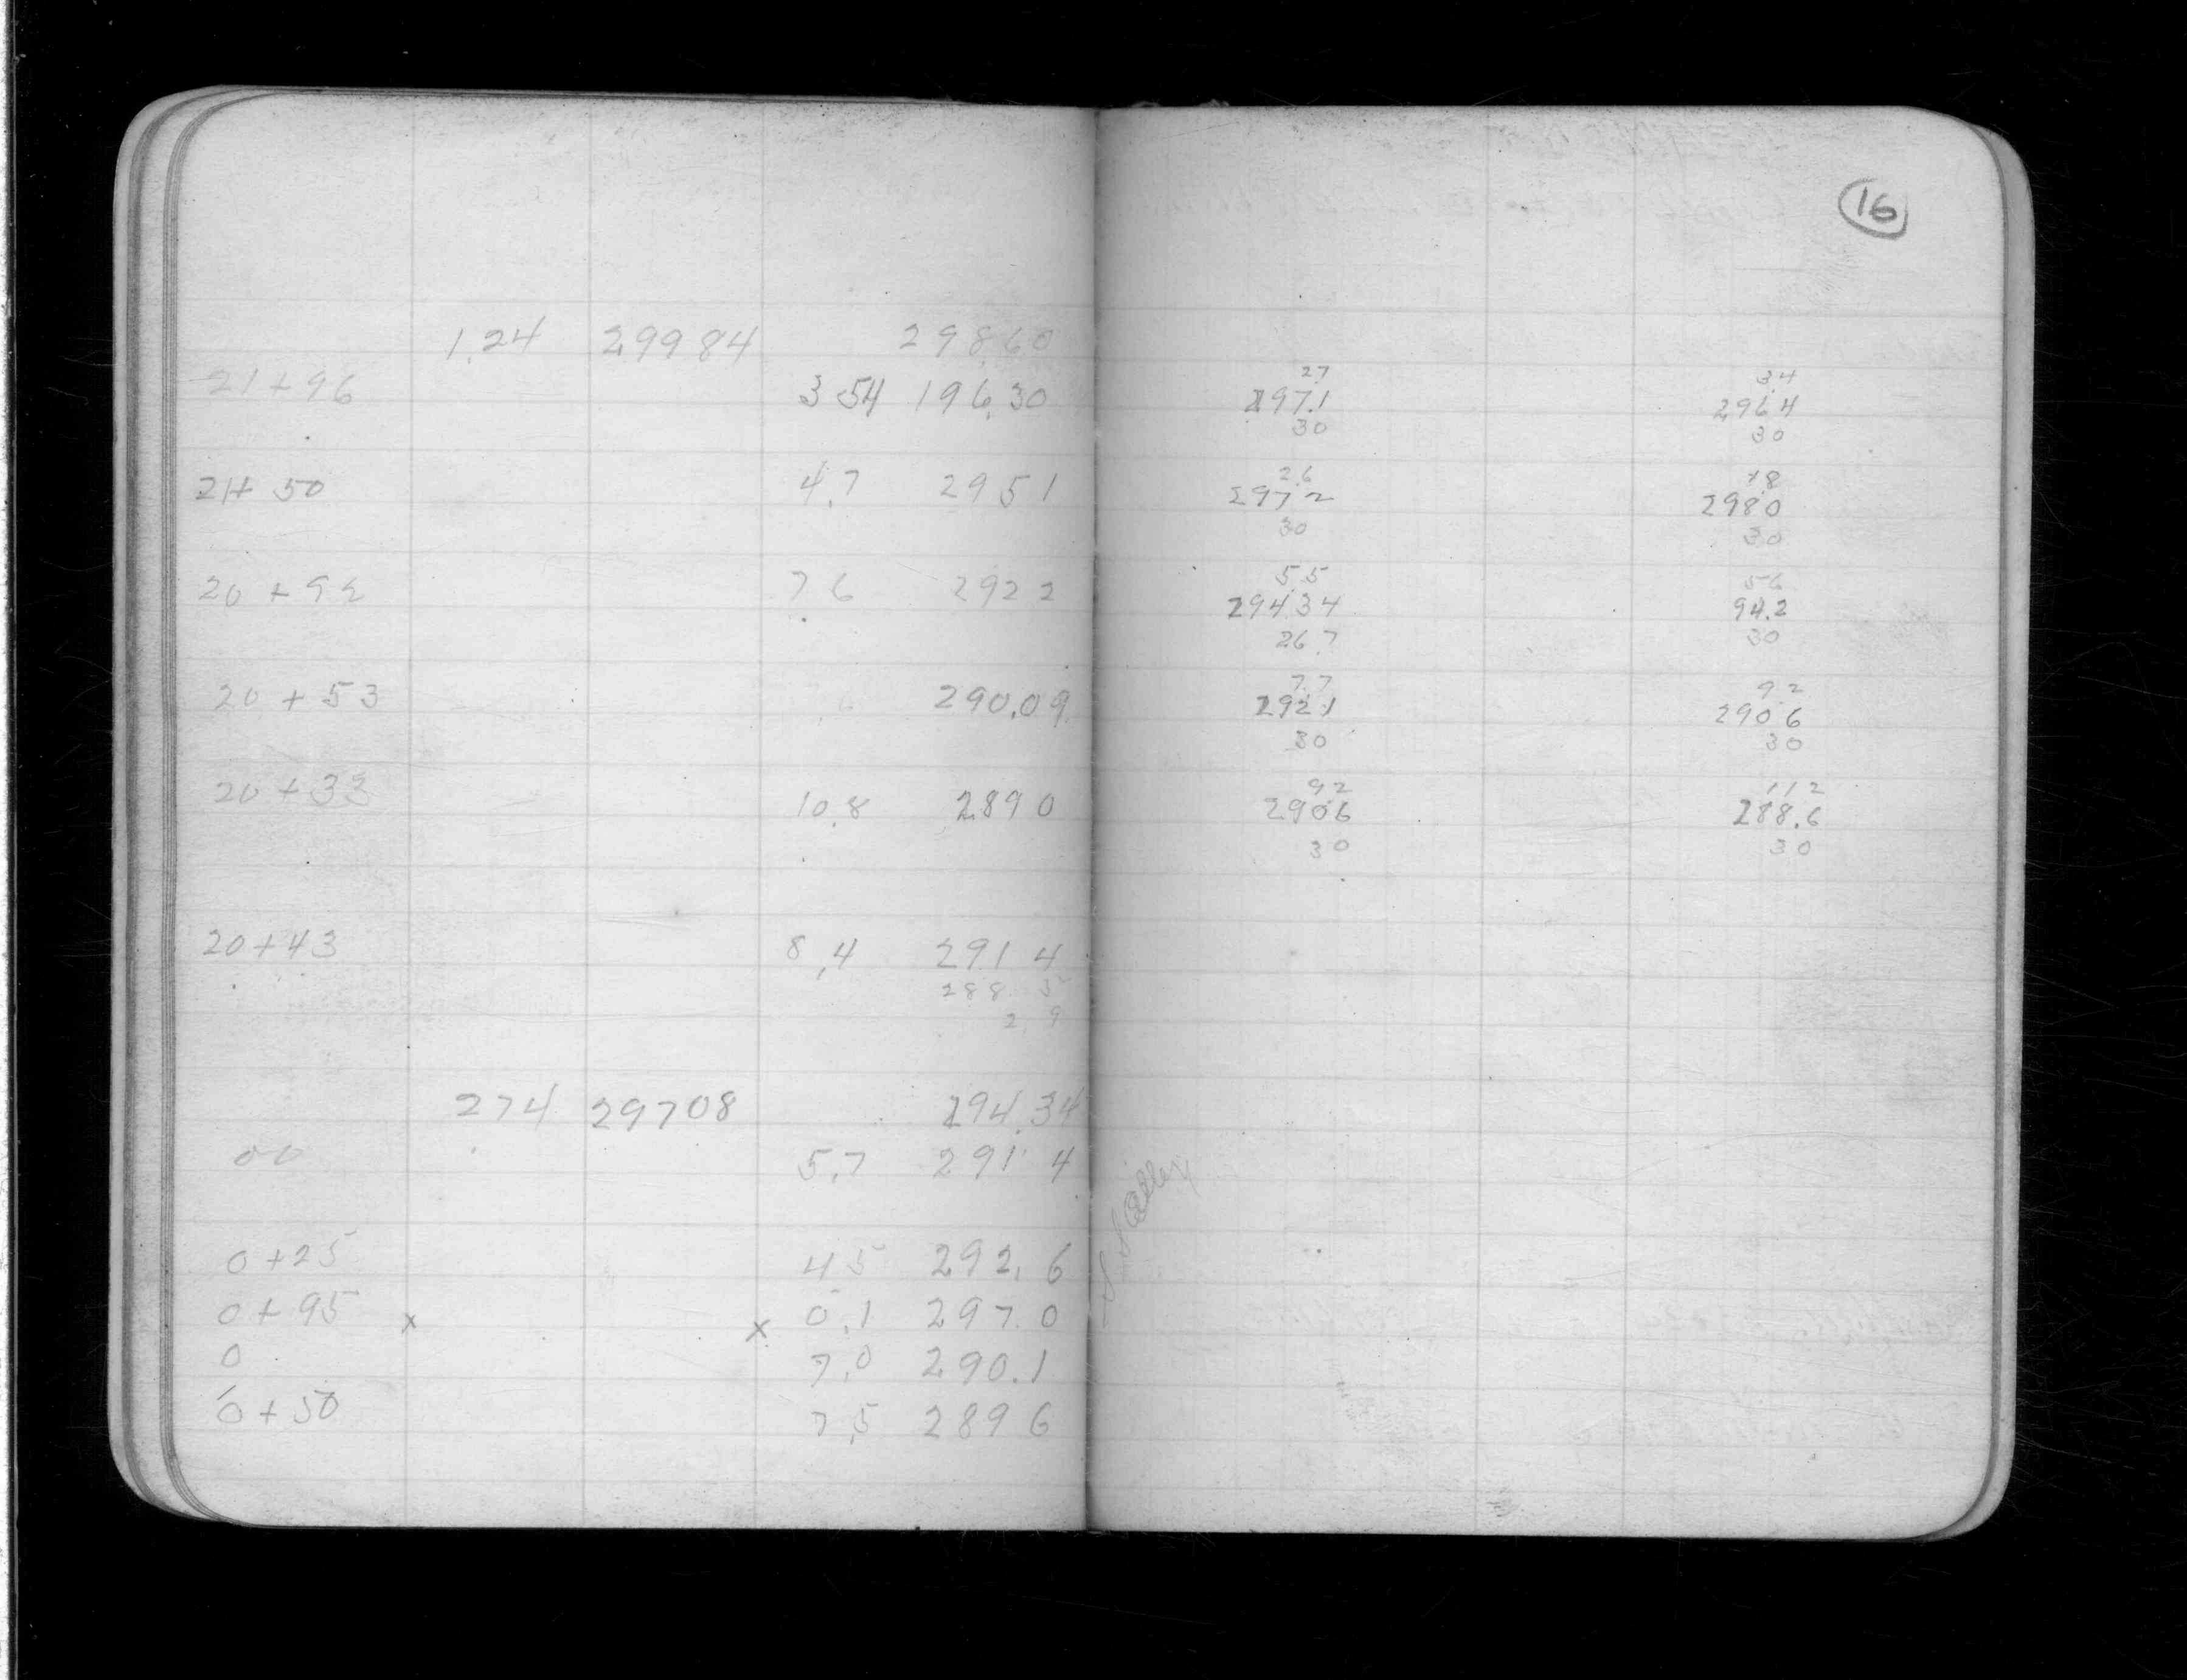 16
1.24 299 84 298.60
21+96 3 54 196.30
21+ 50 4.7 295 1
20 + 92 7 6 292 2
20 + 53 290.09
20 + 33 10.8 289 0
20+43 8.4 291 4
288
2 9
2 74 297 08 294.34
00 5.7 291 4
0 +25 4 5 292. 6
0 + 95 x x 0.1 297.0
0 7.0 290.1
0 + 50 7.5 289 6
27 3.4
297.1 296 4
30 30
2.6 18
297 2 298 0
30 30
5.5 5 6
294 34 94.2
26.7 30
7.7 9 2
292 1 290 6
30 30
9 2 11 2
290 6 288.6
30 30